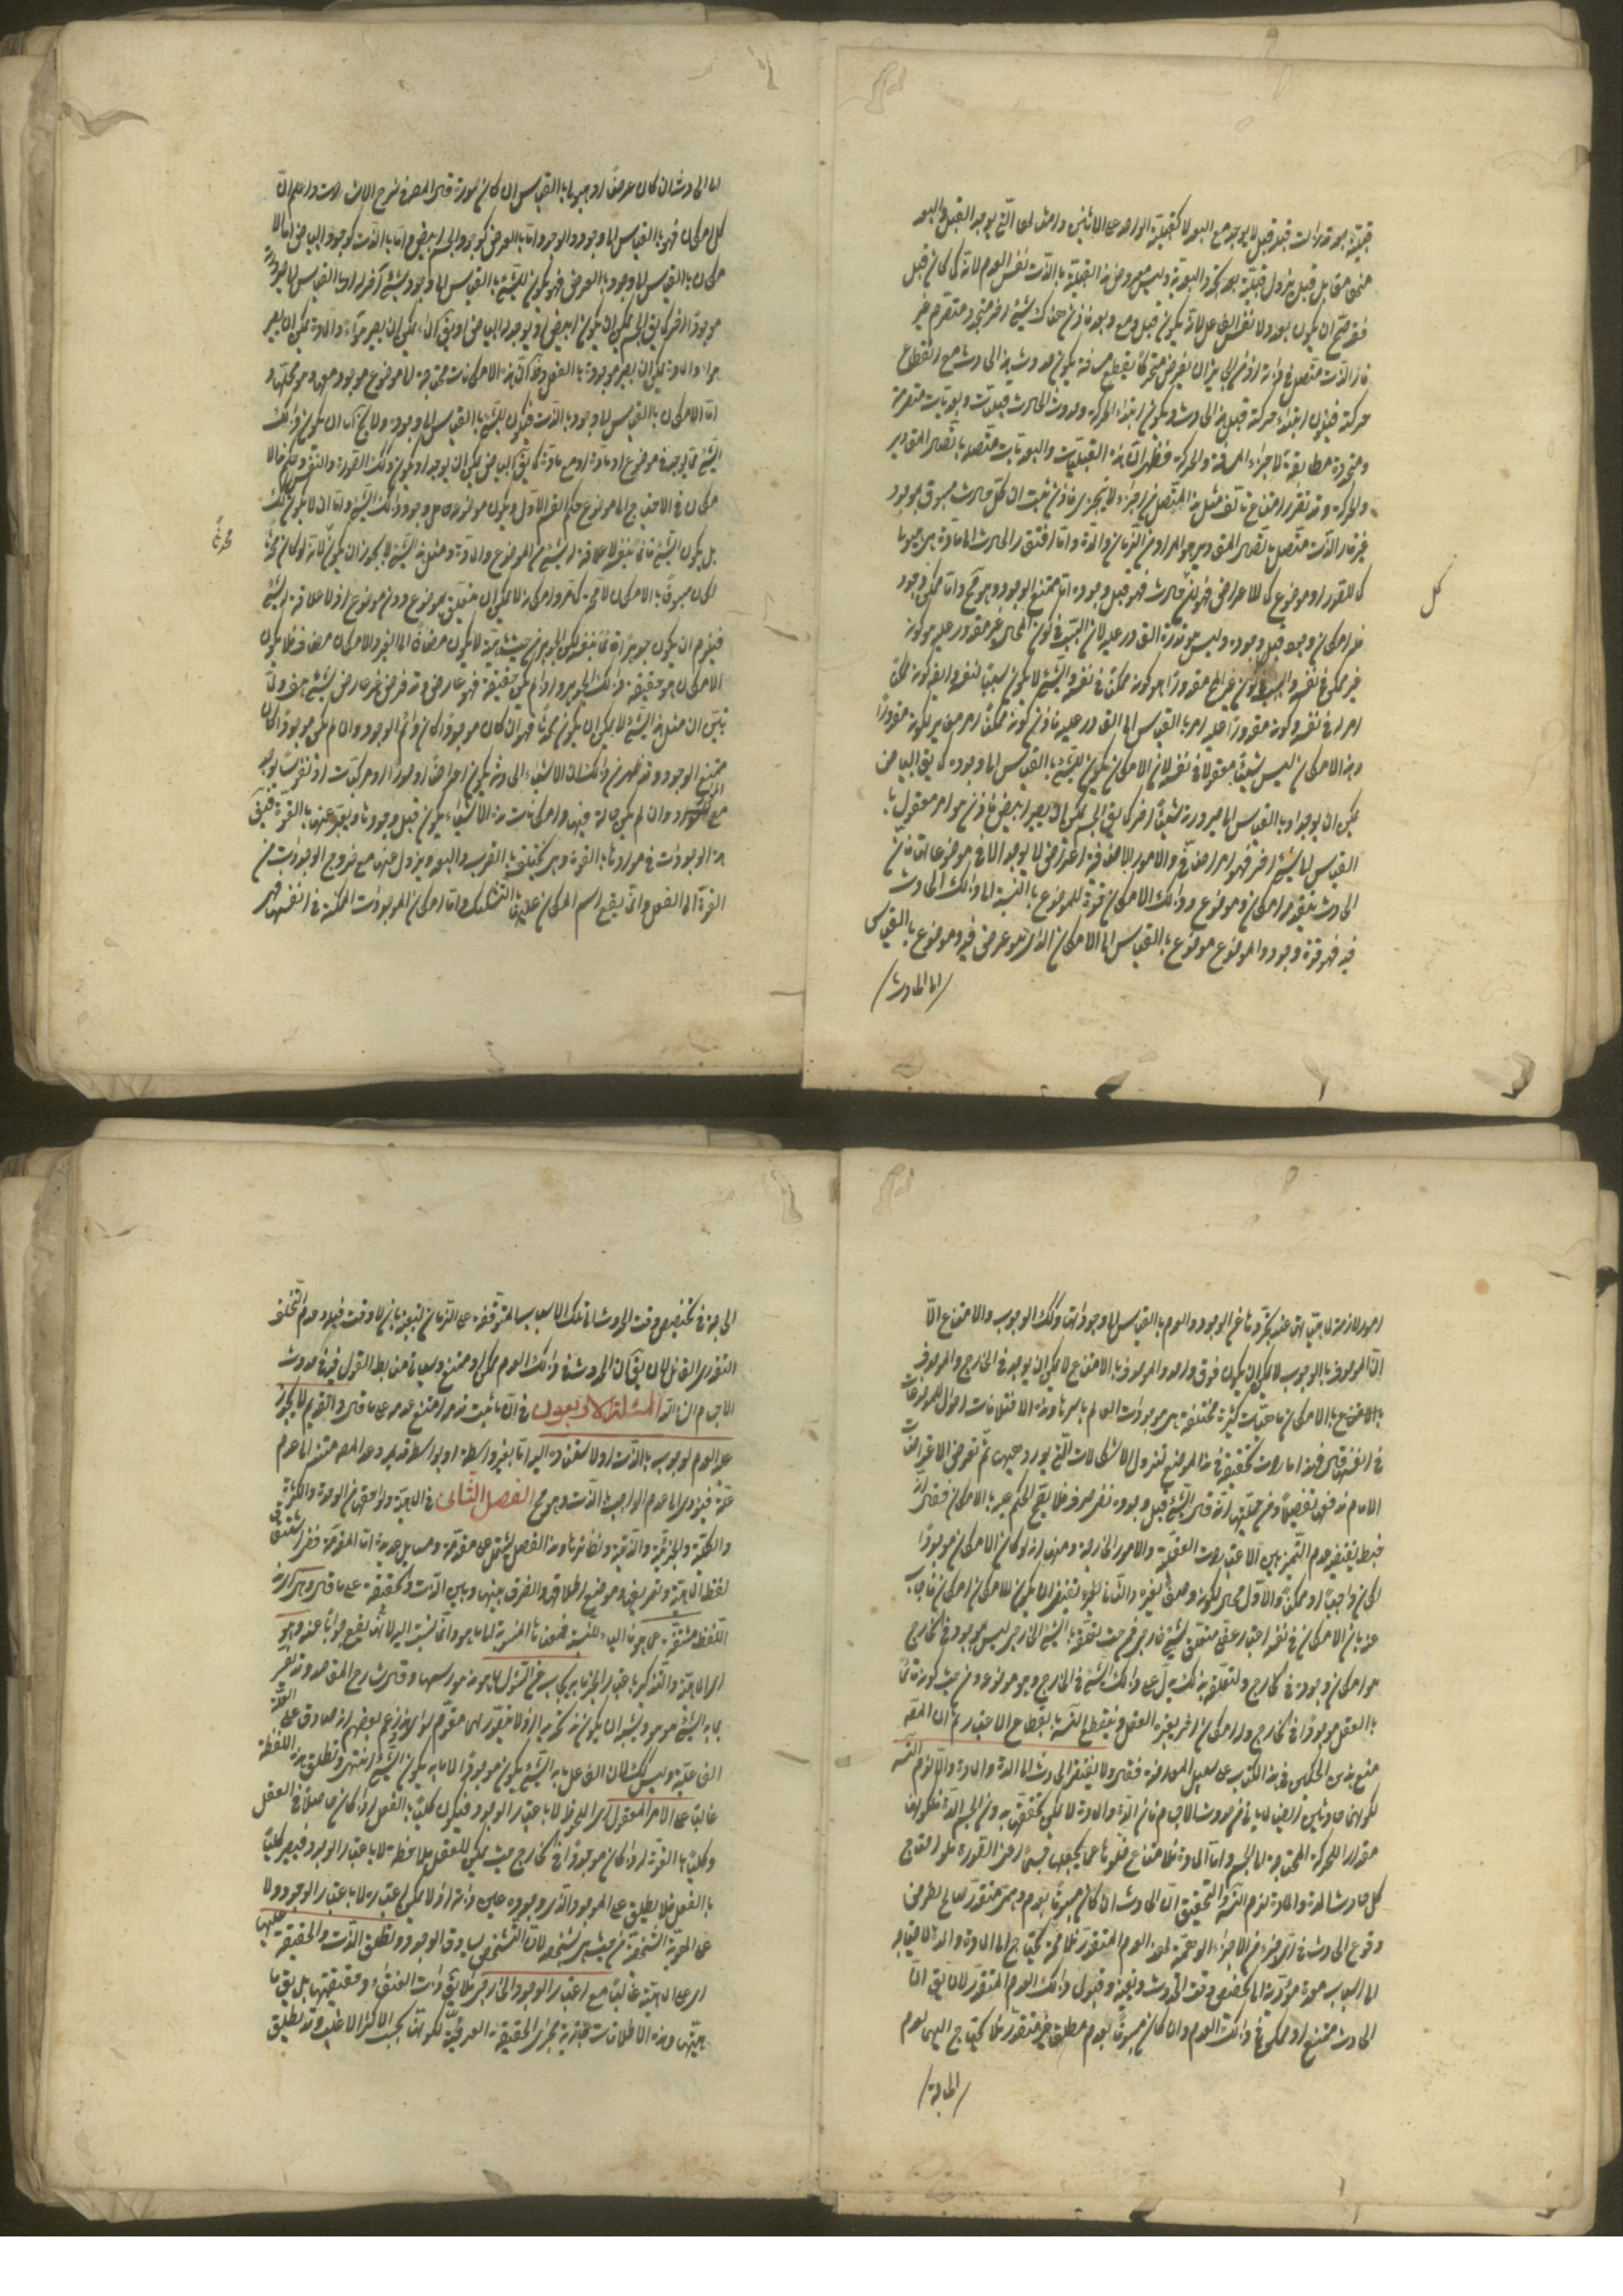 قبلية بعد قبل لا يوجد مع البعد لا كقبلية الواحد على الاثنين وامثالها التي يوجد القبل والبعد
معا بل قبل يزول قبلية بعد تجدد البعدية وليس معروض هذه القبلية بالذات نفس العدم لانه كما كان قبل
فقد صح ان يكون بعد ولا نفس الفاعل لانه يكون قبل ومع وبعد فاذن هناك شيء اخر متجدد متصرم غير
قار الذات متصل في ذاته اذ من الجايز ان يفرض متحرك يقطع مسافة يكون حدوث هذا الحادث مع انقطاع
حركته فيكون ابتداء حركته قبل هذا الحادث ويكون بين ابتداء الحركة وحدوث الحادث قبليات وبعديات متصرمة
ومتجددة مطابقة لاجزاء المسافة والحركة فظهر ان هذه القبليات والبعديات متصلة باتصال المقادير
والحركة وقد تقرر امتناع تألف مثل هذا المتصل من اجزاء لا يتجزى فاذن ثبت ان كل حادث مسبوق بموجود
غير قار الذات متصل باتصال المقادير هو المراد من الزمان والمدة واما افتقار الحادث الى المادة هي هيولى
كما للصور او موضوع كما للاعراض فلان كل حادث فهو قبل وجوده اما ممتنع الوجود وهو مح واما ممكن وجود
فله امكان وجود قبل وجوده وليس هو قدرة القادر عليه لان السبب في كون المحال غير مقدور عليه هو كونه
غير ممكن في نفسه والسبب في كون غير المحال مقدورا هو كونه ممكنا في نفسه والشيء لا يكون سببا لنفسه وايضا كونه ممكنا
امر له في نفسه وكونه مقدورا عليه امر بالقياس الى القادر عليه فاذن كونه ممكنا امر مغاير لكونه مقدورا
وهذا الامكان ليس شيئا معقولا في نفسه لان الامكان يكون للشيء بالقياس الى وجوده كما يق البياض
يمكن ان يوجد او بالقياس الى صيرورته شيئا اخر كما يق الجسم يمكن ان يصير ابيض فاذن هو امر معقول با
القياس الى شيء اخر فهو امر اضافي والامور الاضافية اعراض لا يوجد الا في موضوعاتها فاذن
الحادث يتقدمه امكان وموضوع وذلك الامكان قوة للموضوع بالنسبة الى ذلك الحادث
فيه فهو قوة وجود والموضوع موضوع بالقياس الى الامكان الذي هو عرض فيه وموضوع بالقياس
الى الحادث
كل
الى الحادث ان كان عرضا او هيولى بالقياس ان كان صورة قال المص في شرح الاشارات واعلم ان
كل امكان فهو بالقياس الى وجود والوجود اما بالعرض كوجود الجسم ابيض واما بالذات كوجود البياض اما الا
مكان بالقياس الى وجود بالعرض فهو يكون للشيء بالقياس الى وجود شيء آخر له او بالقياس الى صيرورته
موجودا اخر كما يق الجسم يمكن ان يكون ابيض او يوجد له البياض او يق الماء يمكن ان يصير هواء والمادة يمكن ان يصير
هواء والمادة يمكن ان يصير موجودة بالفعل وظ ان هذه الامكانات محتاجة الى موضوع موجود معها وهو محلها و
اما الامكان بالقياس الى وجود بالذات فيكون للشيء بالقياس الى وجوده ولا يخ اما ان يكون ذلك
الشيء مما يوجد في موضوع او مادة او مع مادة كما يق البياض يمكن ان يوجد او يكون وكذلك الصورة والنفس وحكم هذا الا
مكان في الاحتياج الى موضوع حكم القسم الاول ويكون موضوعه حامل وجود ذلك الشيء واما ان لا يكون كذلك
بل يكون الشيء قائما بنفسه لا علاقة له بشيء من الموضوع والمادة ومثل هذا الشيء لا يجوز ان يكون لانه لو كان محدثا
لكان مسبوقا بالامكان لا محة كما مر وامكانه لا يمكن ان يتعلق بموضوع دون موضوع اذ لا علاقة له بشيء
فيلزم ان يكون جوهرا قائما بنفسه لكن الجوهر من حيث انه لا يكون مضافا الى الغير والامكان مضاف فلا يكون
الامكان هو حقيقة ذلك الجوهر واذا لم يكن حقيقته فهو عارض وقد فرض غير عارض لشيء هف ولما
تبين ان مثل هذا الشيء لا يمكن ان يكون محدثا فهو ان كان موجودا كان دائم الوجود وان لم يكن موجودا كان
ممتنع الوجود وقد ظهر من ذلك ان الاشياء الحادثة يكون اعراضا او صورا او مركبات او نفوسا يوجد
مع المواد وان لم يكن حالة فيها وامكانات هذه الاشياء يكون قبل وجودها ويعبر عنها بالقوة فيق
هذه الوجودات في موادها بالقوة وهي يختلف بالقرب والبعد ويزول عنها مع خروج الوجودات من
القوة الى الفعل وانما يقع اسم الامكان عليها بالتشكيك واما امكان الموجودات الممكنة في انفسها فهي
محدثا
امور لازمة لماهياتها عند تجردها عن الوجود والعدم بالقياس الى وجوداتها وكذلك الوجوب والامتناع الا
ان الموصوف بالوجوب لا يمكن ان يكون فوق واحد والموصوف بالامتناع لا يمكن ان يوجد في الخارج والموصوف
بالامكان ماهيات كثيرة مختلفة هي موجودات العالم باسرها وهذه الاختلافات احوال للموصوفات
في انفسها قال فهذه اشارات تحقيقية في هذا الموضع لتزول الاشكالات التي يوردها ثم نقض الاعتراضات
الامام فنفى تفصيلا ومن جملتها انه قال الشيء قبل وجوده نفي صرف فلا يصح الحكم عليه بالامكان فقال انه
خبط يقتضيه عدم التميز بين الاعتبارات العقلية والامور الخارجية ومنها انه لو كان الامكان موجودا
لكان واجبا او ممكنا والاول محال لكونه وصفا لغيره والثاني يقتضي ان يكون للامكان امكان فاجاب
عنه بان الامكان في نفسه اعتبار عقلي متعلق بشيء خارجي فمن حيث تعلقه بالشيء الخارجي ليس بموجود في الخارج
هو امكان وجوده في الخارج ولتعلقه بذلك يدل على ذلك الشيء في الخارج وهو موضوعه ومن حيث كونه قائما
بالعقل موجودا في الخارج وله امكان اخر يعتبره العقل وينقطع التسلسل بانقطاع الاعتبار ثم ان المص
منع هذين الحكمين في هذا الكتاب على سبيل المعارضة فقال ولا يفتقر الحادث الى المدة والمادة والا لزم التسلسل
لكونهما حادثين ايضا لما ياتي من حدوث الاجسام فان المدة والمادة لا يمكن تحققهما بدون الجسم اما المدة فلكونها
مقدار الحركة المحتاجة الى الجسم واما المادة فلامتناع خلوها عما يجعلها جسما اعني الصورة فلو احتاج
كل حادث الى مدة ومادة لزم التسلسل والتحقيق ان الحادث ان كان مسبوقا بعدم وهمي متقدر صالح لطرفي
وقوع الحادث في آخر جزء من الاجزاء الوهمية لهذا العدم المتقدر فلا محة يحتاج الى المادة والمدة لاحتياجه
الى اسباب معدة مؤدية الى تخصص وقت الحدوث وتعينه وقبول ذلك العدم المتقدر لان يق ان
الحادث ممتنع او ممكن في ذلك العدم وان كان مسبوقا بعدم مطلق غير متقدر فلا يحتاج اليهما لعدم
الحاجة
الحاجة في تخصيص وقت الحدوث الى تلك الاسباب المتوقفة على الزمان لتعينه بان لا وقت قبله وعدم التخلف
التقدير القابل لان يق ان الحدوث في ذلك العدم ممكن او ممتنع وسياتي منا بسط القول فيه في حدوث
الاجسام ان شاء الله المسئلة الاربعون في ان ما ثبت قدمه امتنع عدمه على ما قال والقديم لا يجوز
عليه العدم لوجوبه بالذات او لاستناده اليه اما بغير واسطة او بواسطة قديمة وعدم المعلول مستند الى عدم
علته فيؤدي الى عدم الواجب بالذات وهو مح الفصل الثاني في الماهية ولواحقها من الوحدة والكثرة
والكلية والجزئية والذاتية ونظائرها وهذا الفصل يشتمل على مقدمة ومسائل عديدة اما المقدمة ففي اشتقاق
لفظ الماهية وتعريفها وموضع اطلاقها والفرق بينها وبين الذات والحقيقة على ما قال وهي اي هذه
اللفظة مشتقة عما هو بالحاق الياء للنسبة فمعناها المنسوبة الى ما هو وانما نسبت اليه لانها يقع جوابا عنه وهو
اي الماهية والتذكير باعتبار الخبر ما به يجاب عن السؤال بما هو هذا رسمها وقال شارح المقاصد وقد تفسر
بما به الشيء هو هو ويشبه ان يكون هذا تحديدا اذ لا يتصور لها مقوم سواه وزعم بعضهم انه صادق على العلة
الفاعلية وليس كذلك لان الفاعل ما به الشيء يكون موجودا لا ما به يكون الشيء انتهى وتطلق هذه اللفظة
غالبا على الامر المعقول اي الملحوظ لا باعتبار الوجود فيكون كليا بالفعل اذا كان حاصلا في العقل
وكليا بالقوة اذا كان موجودا في الخارج بحيث يمكن للعقل ملاحظته لا باعتبار الوجود فيصير كليا
بالفعل فلا يطلق على الموجود الذي وجوده عين ذاته اذ لا يمكن اعتباره لا باعتبار الوجود ولا
على الهوية الشخصية من حيث هي شخصية لان التشخص يساوق الوجود ويطلق الذات والحقيقة عليها
اي على الماهية غالبا مع اعتبار الوجود الخارجي فلا يق ذات العنقاء وحقيقتها بل يق ما
هيتها وهذه الاطلاقات جارية مجرى الحقيقة العرفية لكونها بحسب الاكثر الاغلب وقد يطلق